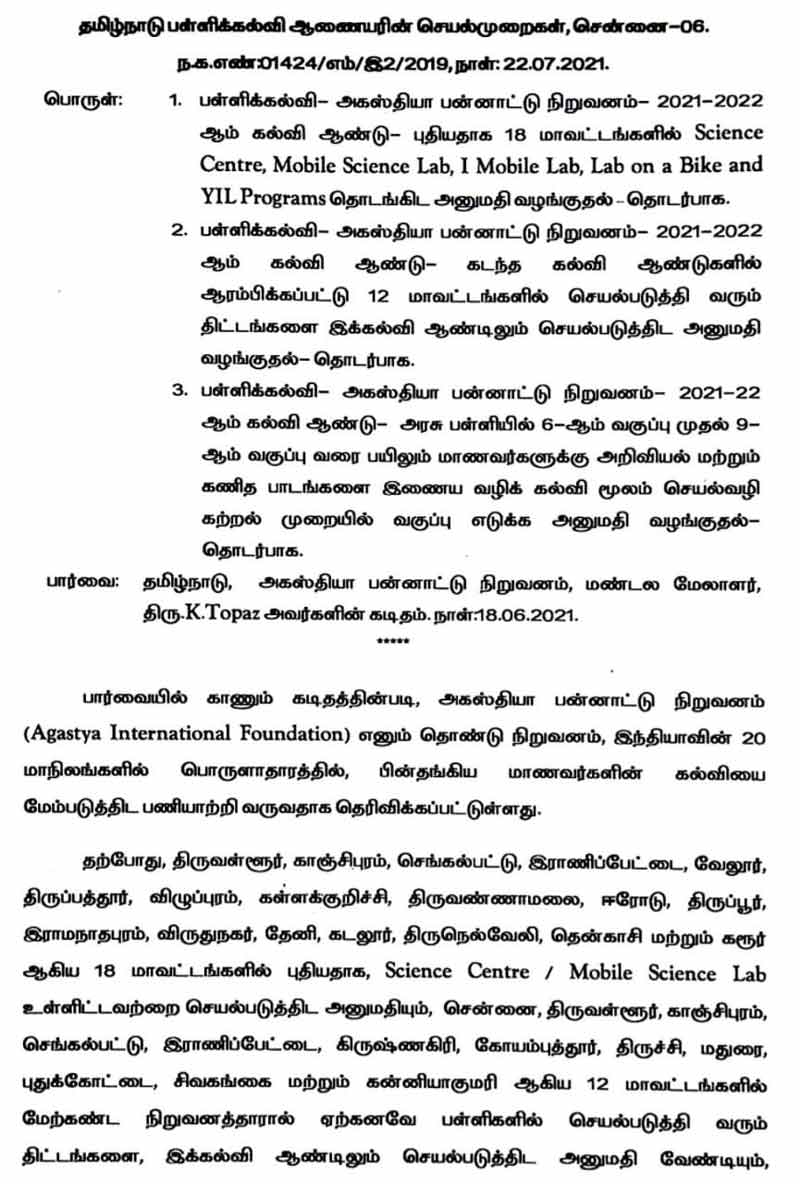 தமிழ்நாடு பள்ளிக்கல்வி ஆணையரின் செயல்முறைகள், சென்னை-06.
ந.க.எண்:01424/எம்/இ2/2019, நாள்: 22.07.2021.
பொருள்: 1. பள்ளிக்கல்வி- அகஸ்தியா பன்னாட்டு நிறுவனம்- 2021-2022
ஆம் கல்வி ஆண்டு- புதியதாக 18 மாவட்டங்களில் Science
Centre, Mobile Science Lab, I Mobile Lab, Lab on a Bike and
YIL Programs தொடங்கிட அனுமதி வழங்குதல் - தொடர்பாக.
2. பள்ளிக்கல்வி- அகஸ்தியா பன்னாட்டு நிறுவனம்- 2021-2022
ஆம் கல்வி ஆண்டு- கடந்த கல்வி ஆண்டுகளில்
ஆரம்பிக்கப்பட்டு 12 மாவட்டங்களில் செயல்படுத்தி வரும்
திட்டங்களை இக்கல்வி ஆண்டிலும் செயல்படுத்திட அனுமதி
வழங்குதல்- தொடர்பாக.
3. பள்ளிக்கல்வி- அகஸ்தியா பன்னாட்டு நிறுவனம்- 2021-22
ஆம் கல்வி ஆண்டு- அரசு பள்ளியில் 6-ஆம் வகுப்பு முதல் 9-
ஆம் வகுப்பு வரை பயிலும் மாணவர்களுக்கு அறிவியல் மற்றும்
கணித பாடங்களை இணைய வழிக் கல்வி மூலம் செயல்வழி
கற்றல் முறையில் வகுப்பு எடுக்க அனுமதி வழங்குதல்-
தொடர்பாக.
பார்வை: தமிழ்நாடு, அகஸ்தியா பன்னாட்டு நிறுவனம், மண்டல மேலாளர்,
திரு.K.Topaz அவர்களின் கடிதம். நாள்:18.06.2021.
*****
பார்வையில் காணும் கடிதத்தின்படி, அகஸ்தியா பன்னாட்டு நிறுவனம்
(Agastya International Foundation) எனும் தொண்டு நிறுவனம், இந்தியாவின் 20
மாநிலங்களில் பொருளாதாரத்தில், பின்தங்கிய மாணவர்களின் கல்வியை
மேம்படுத்திட பணியாற்றி வருவதாக தெரிவிக்கப்பட்டுள்ளது.
தற்போது, திருவள்ளூர், காஞ்சிபுரம், செங்கல்பட்டு, இராணிப்பேட்டை, வேலூர்,
திருப்பத்தூர், விழுப்புரம், கள்ளக்குறிச்சி, திருவண்ணாமலை, ஈரோடு, திருப்பூர்,
இராமநாதபுரம், விருதுநகர், தேனி, கடலூர், திருநெல்வேலி, தென்காசி மற்றும் கரூர்
ஆகிய 18 மாவட்டங்களில் புதியதாக, Science Centre / Mobile Science Lab
உள்ளிட்டவற்றை செயல்படுத்திட அனுமதியும், சென்னை, திருவள்ளூர், காஞ்சிபுரம்,
செங்கல்பட்டு, இராணிப்பேட்டை, கிருஷ்ணகிரி, கோயம்புத்தூர், திருச்சி, மதுரை,
புதுக்கோட்டை, சிவகங்கை மற்றும் கன்னியாகுமரி ஆகிய 12 மாவட்டங்களில்
மேற்கண்ட நிறுவனத்தாரால் ஏற்கனவே பள்ளிகளில் செயல்படுத்தி வரும்
திட்டங்களை, இக்கல்வி ஆண்டிலும் செயல்படுத்திட அனுமதி வேண்டியும்,